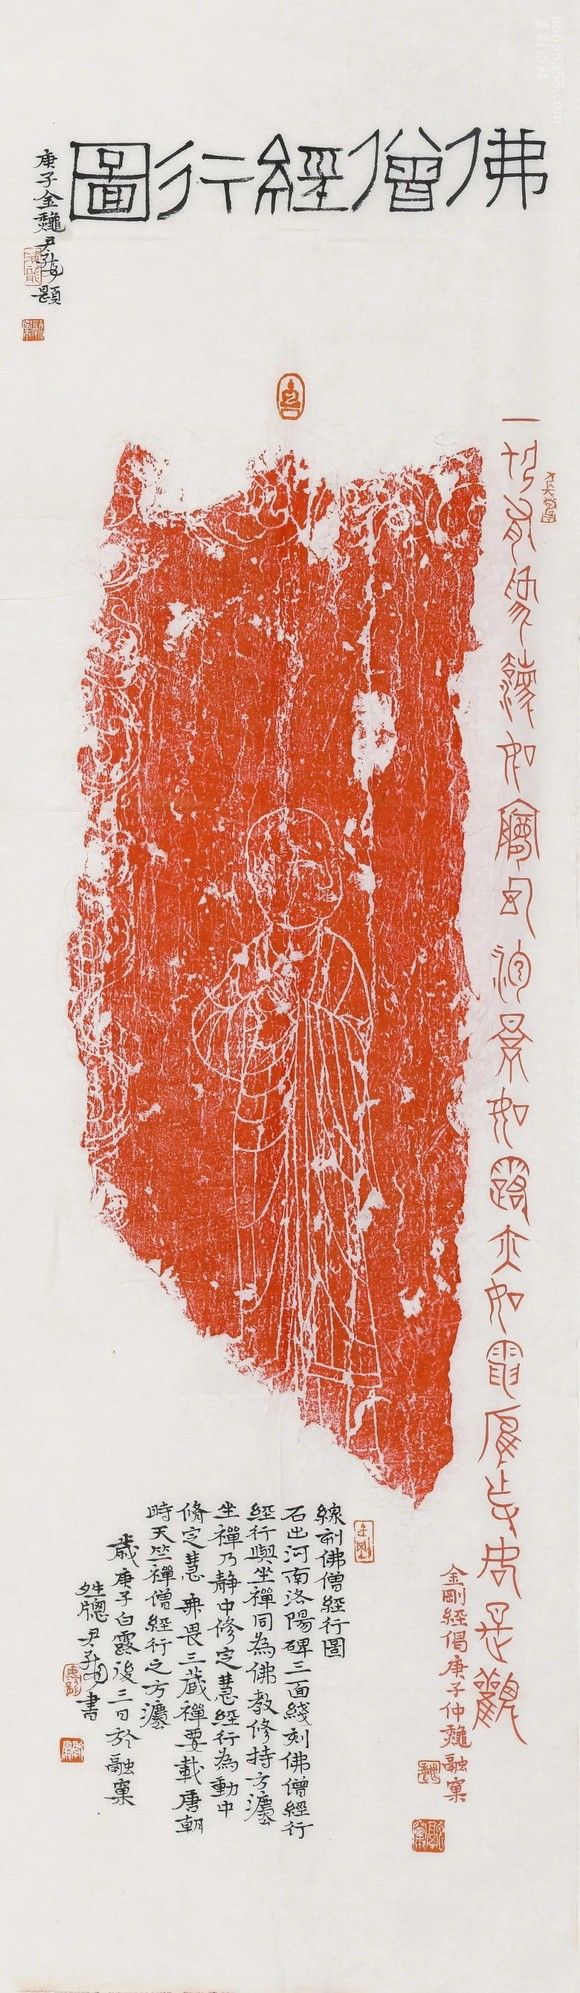 佛僧經行圖
庚子金龝尹海題
一切有為法如夢幻泡景如露亦如電應作如是觀
金剛經偈庚子仲龝融窠
線刻佛僧經行圖
石出河南洛陽碑三面綫刻佛僧經行
經行與坐禪同為佛教修持方灋
坐禪乃靜中修定慧經行為動中
脩定慧無畏三藏禪要載唐朝
時天竺禪僧經行之方灋
歲庚子白露後三日於融窠
書